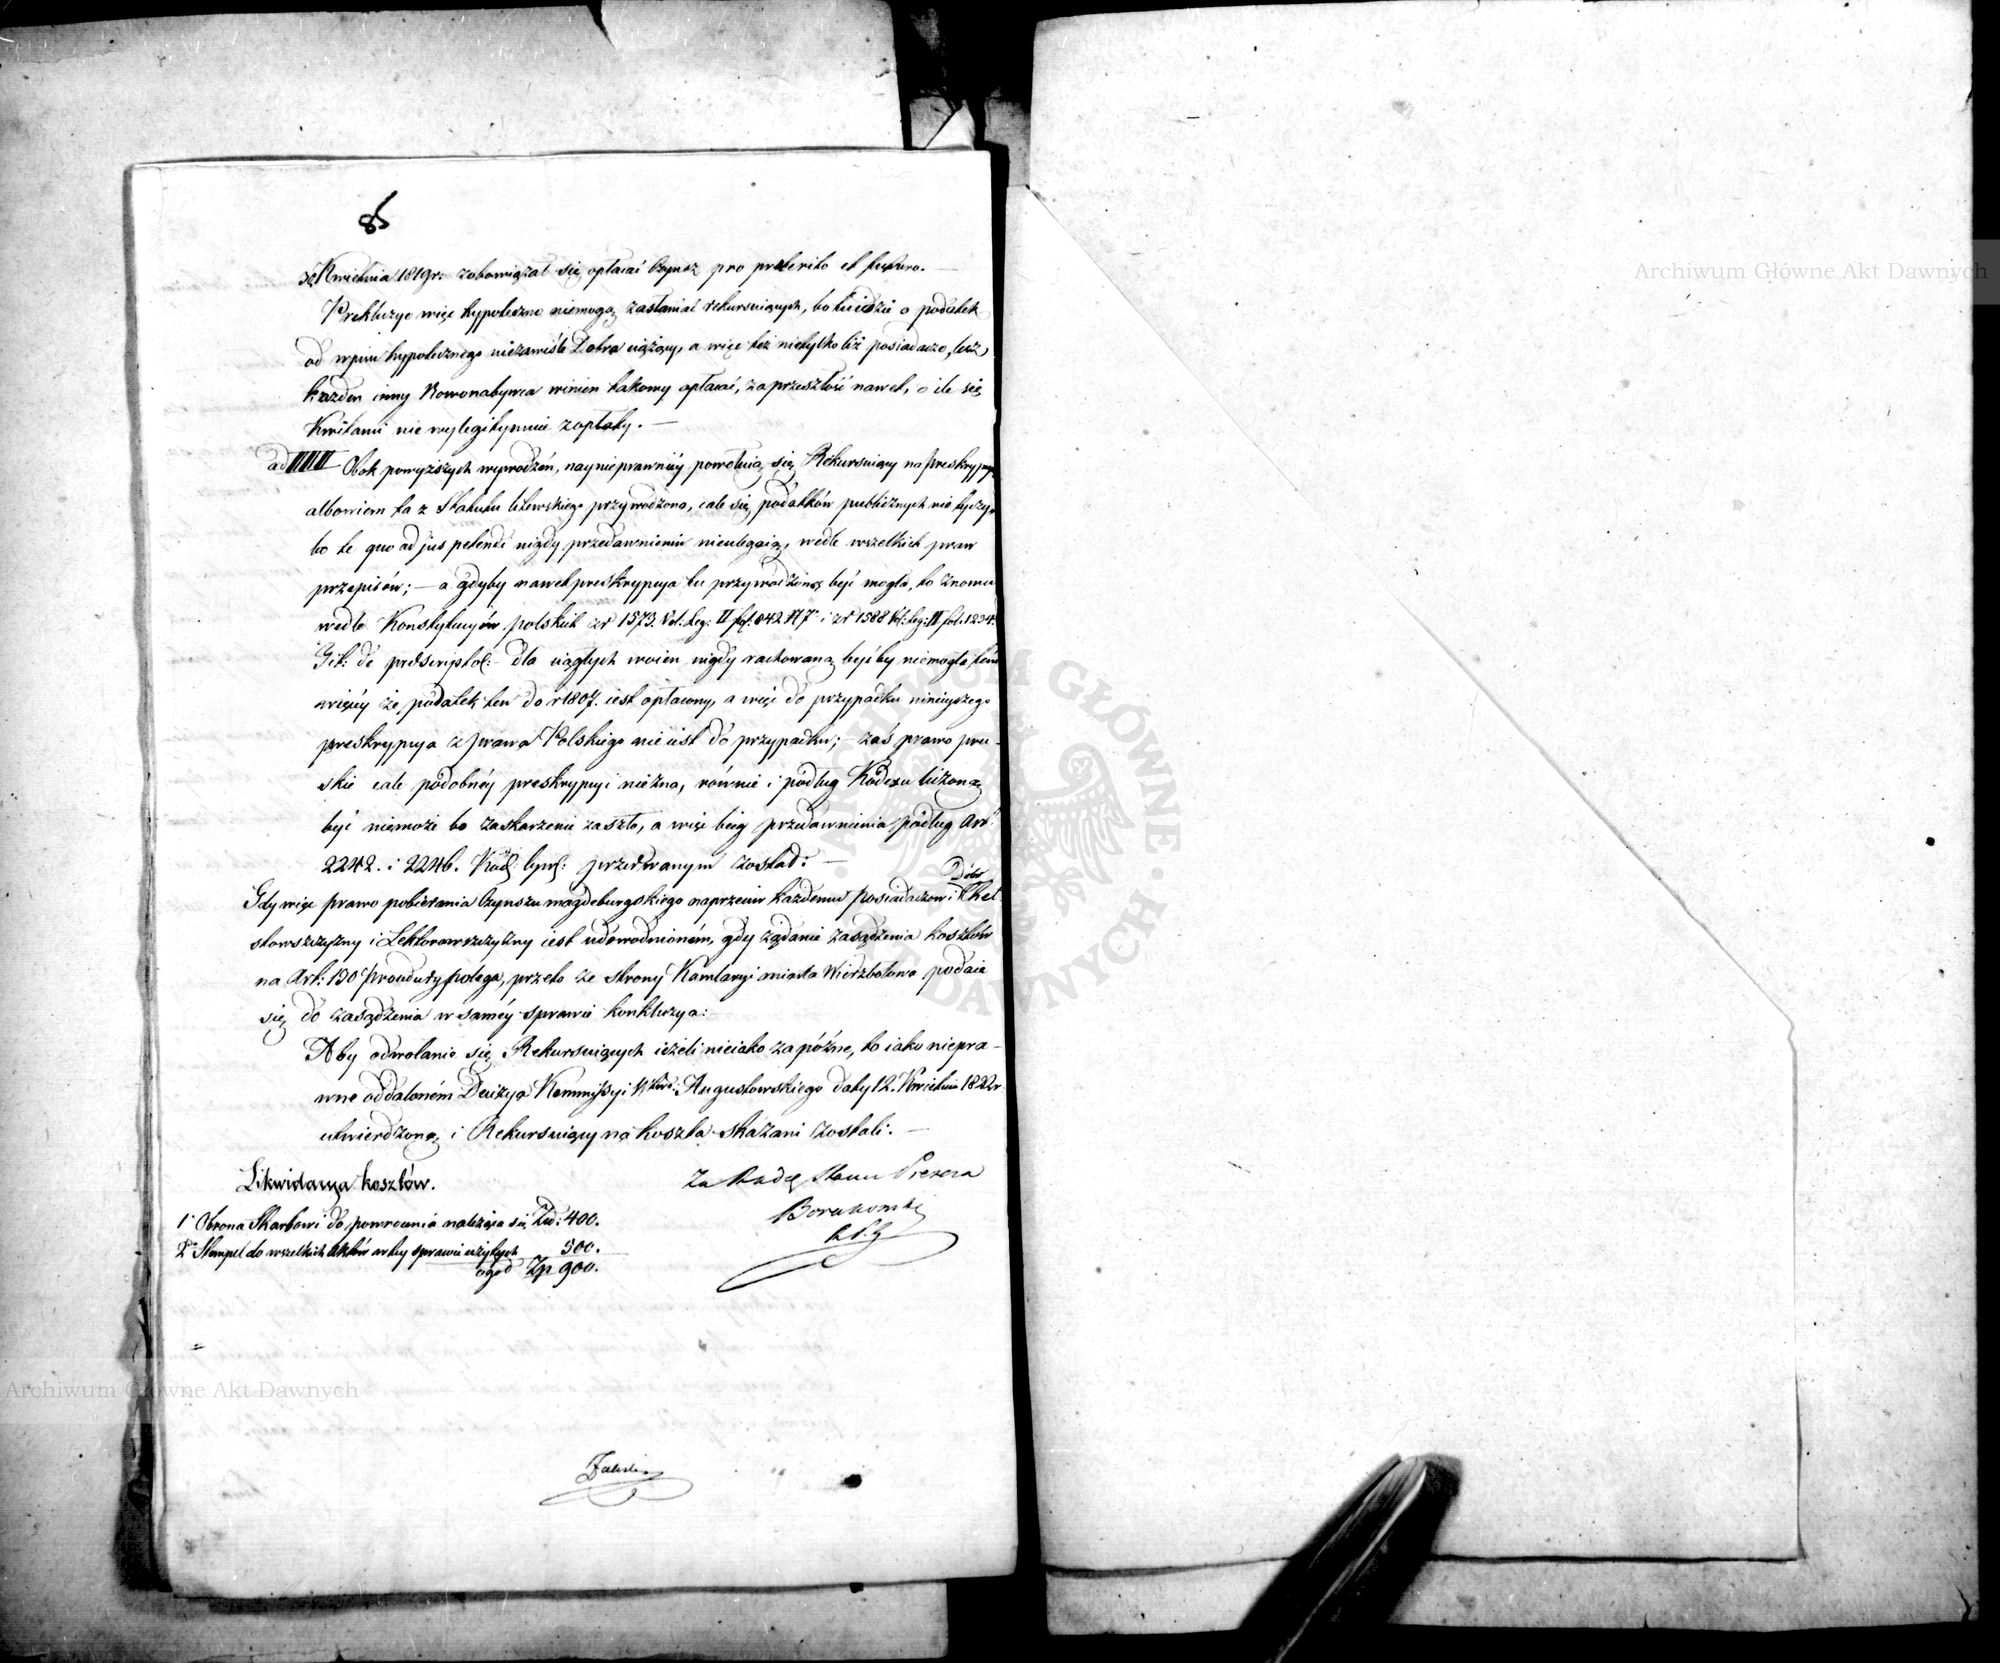 86
Kwietnia 1819r: zobowiązał się opłacać Czynsz pro preterito et futuro. —
Prekluzye więc hypoteczne niemogą zasłaniać rekursuiących, bo tu idzie o podatek
od wpisu hypotecznego niezawisle Dobra ciążący, a więc też nietylko był posiadacz, lecz
każden inny Nowonabywca winien takowy opłacać, za przeszłość nawet, o ile się
Kwitami nie wylegitymuie zapłaty. —
ad IIIIII Obok powyższych wywodzeń, naynieprawniéy powołuią się Rekursuiący na preskrypcyą
albowiem ta z Statutu litewskiego przywodzona, cale się podatków publicznych nie tyczy
bo te quo ad jus petendi nigdy przedawnieniu nieulegaią, wedle wszelkich praw
przepisów; — a gdyby nawet preskrypcya tu przywodzoną być mogła, to znowu
wedle Konstytucyów polskich zr 1573. Vol: Leg: II fol: 842 N 7° i zr 1588 Vol: Leg: II fol: 1234.
Tit: de prescriptol: — dla ciągłych woien nigdy rachowaną być by niemogła, tém
więcéy że podatek ten do r 1807. iest opłacony, a więc do przypadku ninieyszego
preskrypcya z prawa Polskiego nie iest do przypadku; — zaś prawo pru-
skie cale podobnéy preskrypcyi niezna, równie i podług Kodexu liczoną
być niemoże bo zaskarżenie zaszło, a więc bieg przedawnienia podług Art:
2242. i 2246. Kod: Cywil: przerwanym został: —
Dóbr
Gdy więc prawo pobierania Czynszu magdeburgskiego naprzeciw każdemu posiadaczowi Cheł
stowszczyzny i Lektorowszczyzny iest udowodnioném, gdy żądanie zasądzenia kosztów
na Art: 130 Procedury polega, przeto ze strony Kamlaryi miasta Wierzbołowa podaie
się do zasądzenia w saméy sprawie konkluzya:
Aby odwołanie się Rekursuiących ieżeli nieiako zapóźne, to iako niepra-
wne oddaloném Decyzya Kommissyi Wdztwa: Augustowskiego daty 12. Kwietnia 1822r
utwierdzoną i Rekursuiący na koszta skazani zostali. —
Likwidacya kosztów.
1° Obrona Skarbowi do powrócenia należąca się Złd: 400.
2° Stempel do wszelkich aktów w téy sprawie użytych 500.
ogół Zp 900.
Za Radcę Stanu Prezesa
Archiwum Główne Akt Dawnych
Archiwum Główne Akt Dawnych
ARCHIWUM GŁÓWNE · AKT DAWNYCH ·